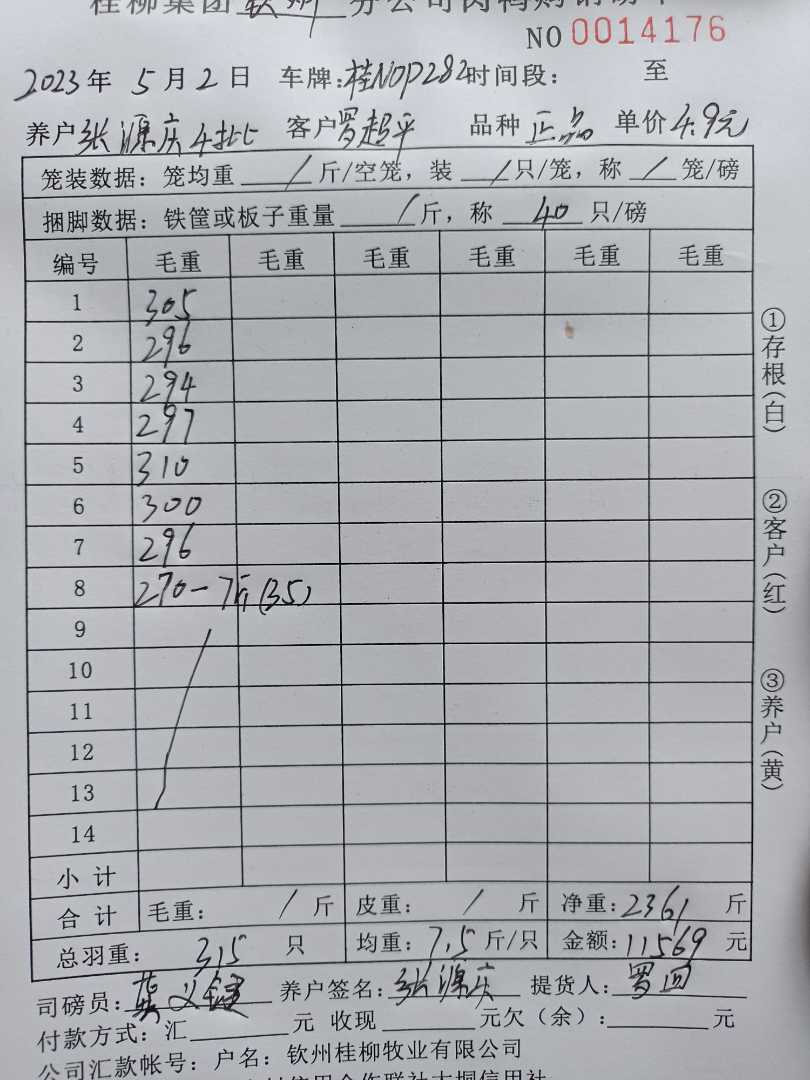 桂柳集团钦州分公司肉鸭购销磅单
NO 0014176
2023年5月2日 车牌:桂NOP282时间段: 至
养户张源庆4批 客户罗超平 品种正品 单价4.9元
笼装数据: 笼均重 / 斤/空笼, 装 / 只/笼, 称 / 笼/磅
捆脚数据: 铁筐或板子重量 / 斤, 称 40 只/磅
编号 毛重 毛重 毛重 毛重 毛重 毛重
1 305
2 296
3 294
4 297
5 310
6 300
7 296
8 270-7斤(35)
9
10
11
12
13
14
小计
合计 毛重: / 斤 皮重: / 斤 净重:2361斤
总羽重: 315 只 均重:7.5斤/只 金额:11569元
司磅员: 龚义键 养户签名:张源庆 提货人:罗回
付款方式: 汇 元 收现 元欠(余): 元
公司汇款帐号: 户名: 钦州桂柳牧业有限公司
①存根(白)
②客户(红)
③养户(黄)